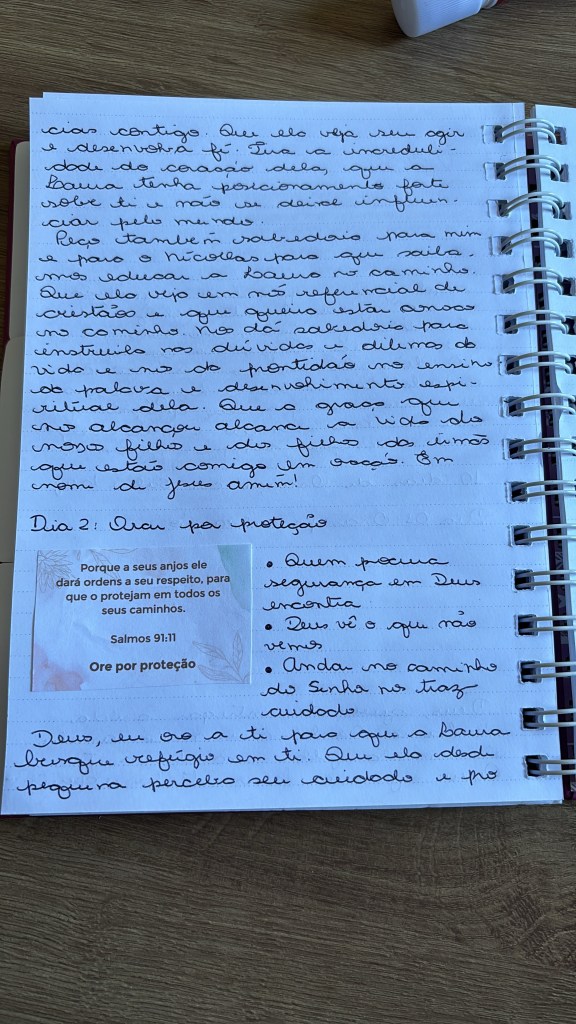 cias contigo. Que ela veja seu agir
e desenvolva fé. Tira a increduli-
dade do coração dela, que a
Laura tenha posicionamento forte
sobre ti e não se deixe influen-
ciar pelo mundo.
Peço também sabedoria para mim
e para o Nicollas para que saiba-
mos educar a Laura no caminho.
Que ela veja em nós referencial de
cristãos e que queira estar
no caminho. Nos dá sabedoria para
instruila nas dúvidas e dilemas da
vida e nos dá prontidão no ensino
da palavra e desenvolvimento espi-
ritual dela. Que a graça que
nos alcançou alcance a vida do
nosso filho e dos filhos das irmãs
que estão comigo em oração. Em
nome de Jesus amém!
Dia 2: Orar por proteção
Porque a seus anjos ele
dará ordens a seu respeito, para
que o protejam em todos os
seus caminhos.
Salmos 91:11
Ore por proteção
• Quem procura
segurança em Deus
encontra
• Deus vê o que não
vemos
• Andar no caminho
do Senhor nos traz
cuidado
Deus, eu oro a ti para que a Laura
busque refúgio em ti. Que ela desde
pequena perceba seu cuidado e pro